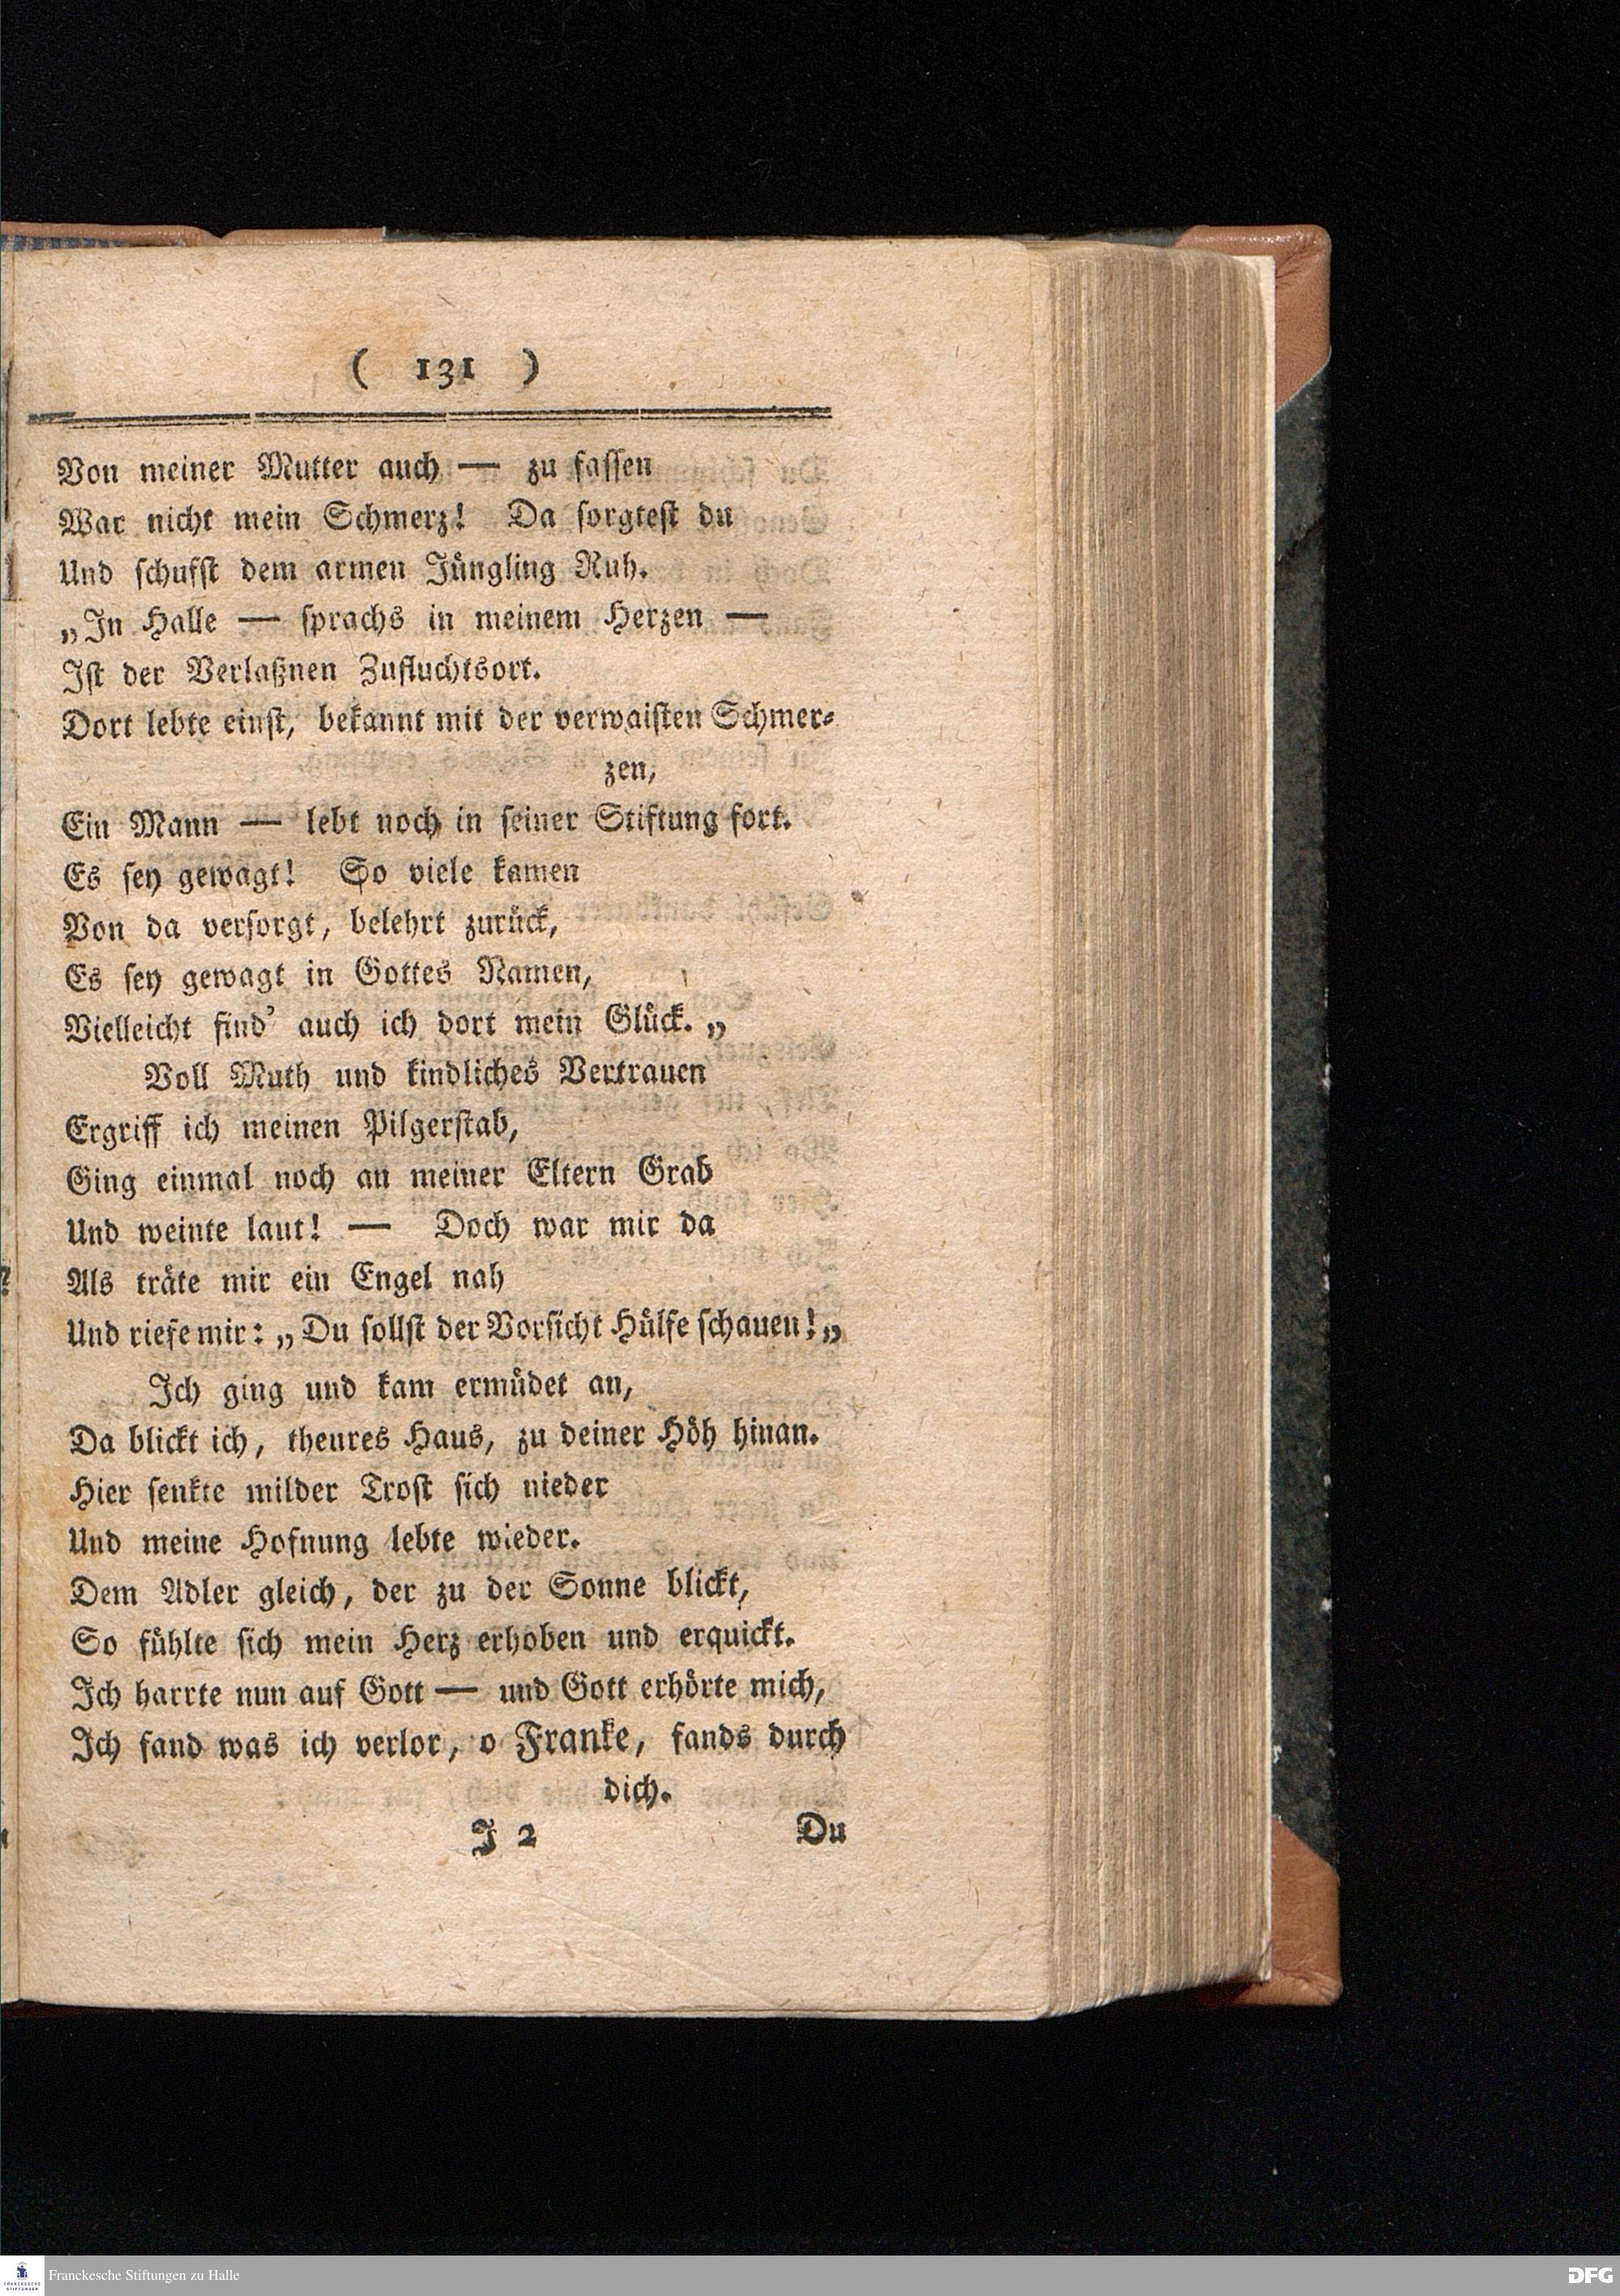 ( 131 )
Von meiner Mutter auch — zu fassen
War nicht mein Schmerz! Da sorgtest du
Und schufst dem armen Jüngling Ruh.
„In Halle — sprachs in meinem Herzen —
Ist der Verlaßnen Zufluchtsort.
Dort lebte einst, bekannt mit der verwaisten Schmer⸗
zen,
Ein Mann — lebt noch in seiner Stiftung fort.
Es sey gewagt! So viele kamen
Von da versorgt, belehrt zurück,
Es sey gewagt in Gottes Namen,
Vielleicht find' auch ich dort mein Glück. „
Voll Muth und kindliches Vertrauen
Ergriff ich meinen Pilgerstab,
Ging einmal noch an meiner Eltern Grab
Und weinte laut! — Doch war mir da
Als träte mir ein Engel nah
Und riefe mir: „Du sollst der Vorsicht Hülfe schauen! „
Ich ging und kam ermüdet an,
Da blickt ich, theures Haus, zu deiner Höh hinan.
Hier senkte milder Trost sich nieder
Und meine Hofnung lebte wieder.
Dem Adler gleich, der zu der Sonne blickt,
So fühlte sich mein Herz erhoben und erquickt.
Ich harrte nun auf Gott — und Gott erhörte mich,
Ich fand was ich verlor, o Franke, fands durch
dich.
J 2 Du
FRANCKESCHE STIFTUNGEN
Franckesche Stiftungen zu Halle
DFG